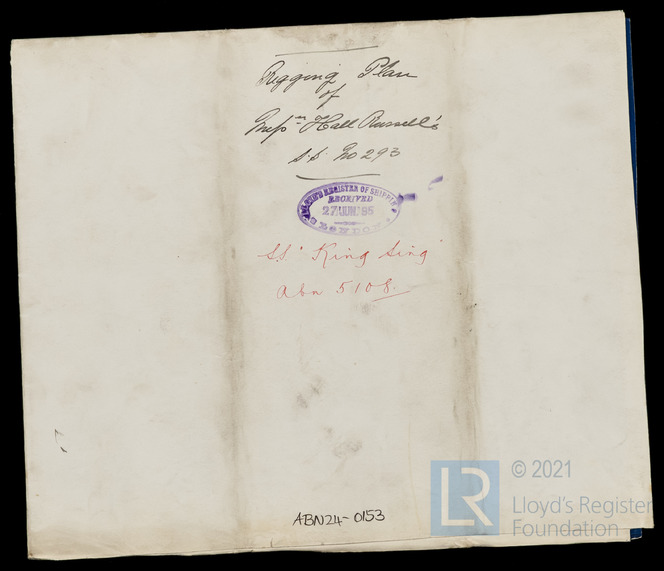 Rigging Plan
of
Messrs Hall Russell's
S.S. No 293
LLOYD'S REGISTER OF SHIPPING
RECEIVED
27 JUN. 95
LONDON
SS "King Sing"
Abn 5108.
ABN24-0153
LR
© 2021
Lloyd's Register
Foundation